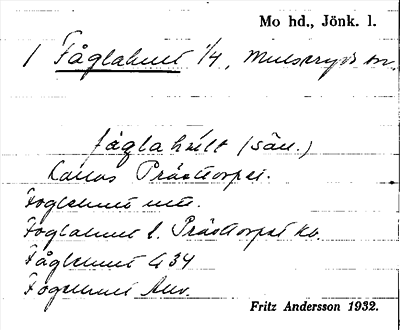 Mo hd., Jönk. l.
1 Fåglahult 1/4, Mulseryds sn.
fåglahúlt (sän.)
Kallas Prästtorpet.
Foglehult
Foglahult l. Prästtorpet kb.
Fåglehult G 34
Fogelhult
Fritz Andersson 1932.